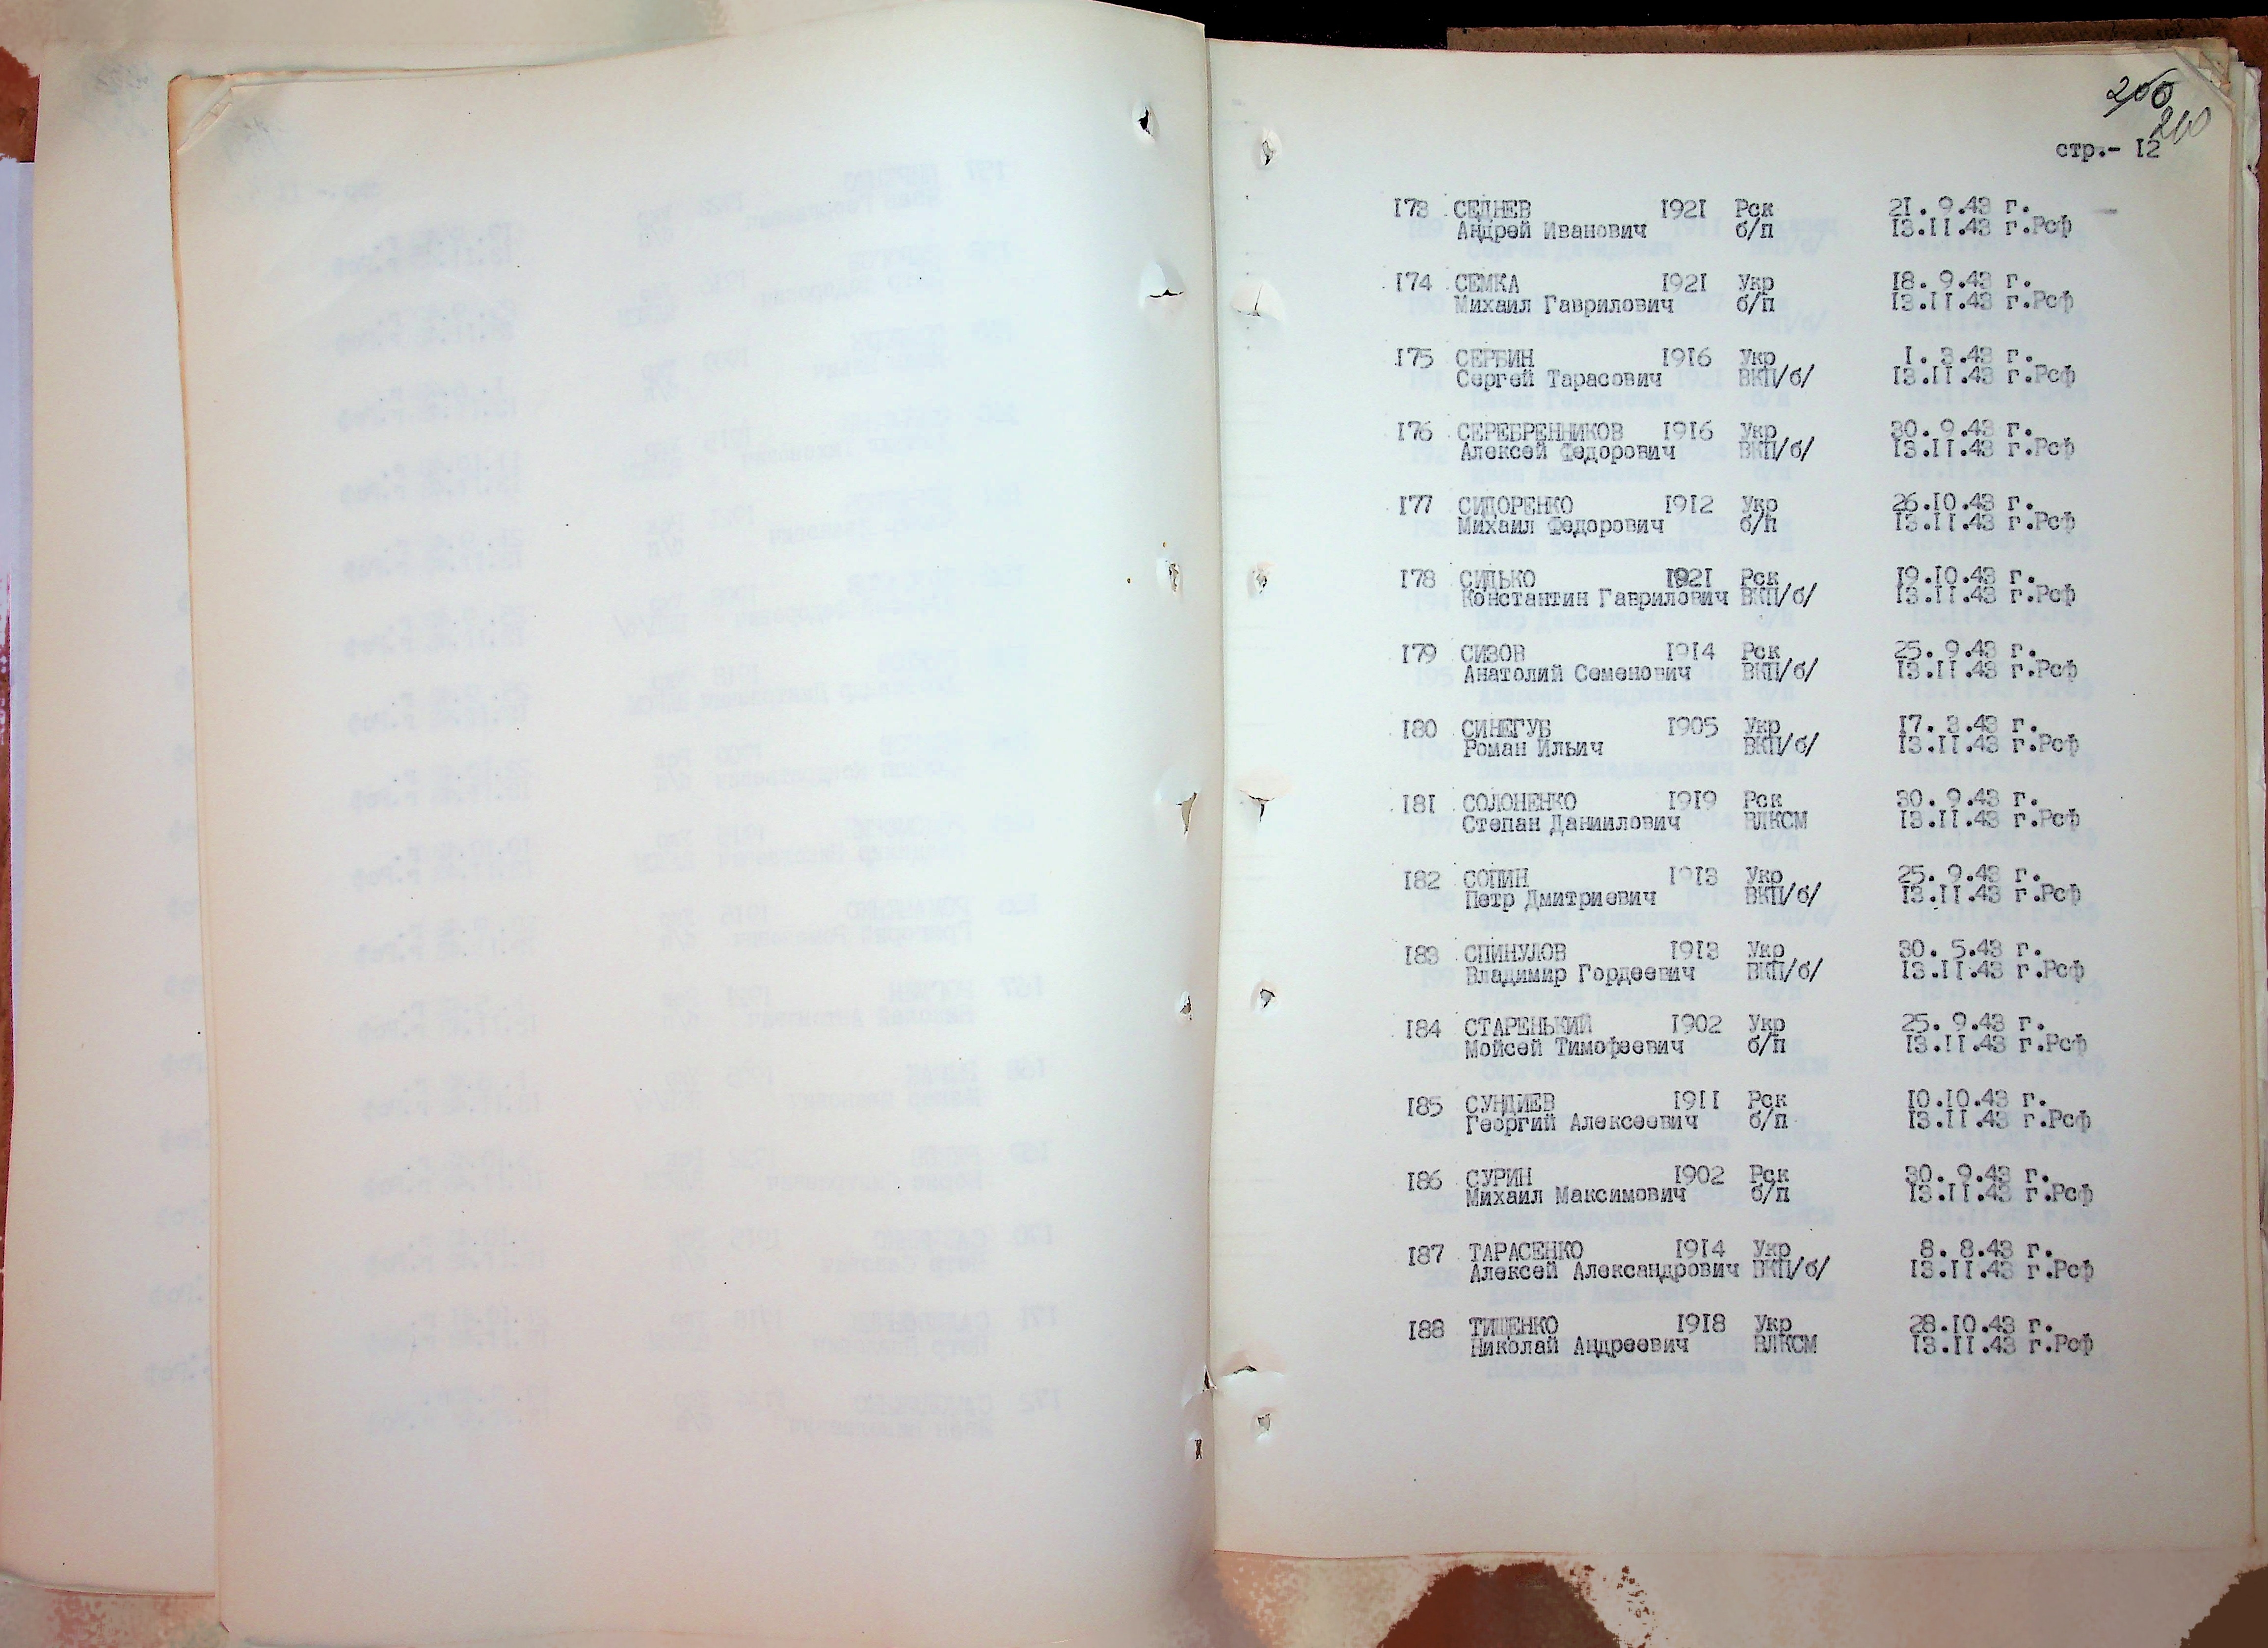 200
стр.- I2
I73 СЕДНЕВ I92I Рск 2I. 9.43 г.
Андрей Иванович б/п I3.II.43 г.Рсф
I74 СЕМКА I92I Укр I8. 9.43 г.
Михаил Гаврилович б/п I3.II.43 г.Рсф
I75 СЕРБИН I9I6 Укр I. 3.43 г.
Сергей Тарасович ВКП/б/ I3.II.43 г.Рсф
I76 СЕРЕБРЕННИКОВ I9I6 Укр 30. 9.43 г.
Алексей Федорович ВКП/б/ I3.II.43 г.Рсф
I77 СИДОРЕНКО I9I2 Укр 26.I0.43 г.
Михаил Федорович б/п I3.II.43 г.Рсф
I78 СИДЬКО I92I Рск I9.I0.43 г.
Константин Гаврилович ВКП/б/ I3.II.43 г.Рсф
I79 СИЗОВ I9I4 Рск 25. 9.43 г.
Анатолий Семенович ВКП/б/ I3.II.43 г.Рсф
I80 СИНЕГУБ I905 Укр I7. 3.43 г.
Роман Ильич ВКП/б/ I3.II.43 г.Рсф
I8I СОЛОНЕНКО I9I9 Рск 30. 9.43 г.
Степан Даниилович ВЛКСМ I3.II.43 г.Рсф
I82 СОПИН I9I3 Укр 25. 9.43 г.
Петр Дмитриевич ВКП/б/ I3.II.43 г.Рсф
I83 СПИНУЛОВ I9I3 Укр 30. 5.43 г.
Владимир Гордеевич ВКП/б/ I3.II.43 г.Рсф
I84 СТАРЕНЬКИЙ I902 Укр 25. 9.43 г.
Мойсей Тимофеевич б/п I3.II.43 г.Рсф
I85 СУНДИЕВ I9II Рск I0.I0.43 г.
Георгий Алексеевич б/п I3.II.43 г.Рсф
I86 СУРИН I902 Рск 30. 9.43 г.
Михаил Максимович б/п I3.II.43 г.Рсф
I87 ТАРАСЕНКО I9I4 Укр 8. 8.43 г.
Алексей Александрович ВКП/б/ I3.II.43 г.Рсф
I88 ТИЩЕНКО I9I8 Укр 28.I0.43 г.
Николай Андреевич ВЛКСМ I3.II.43 г.Рсф